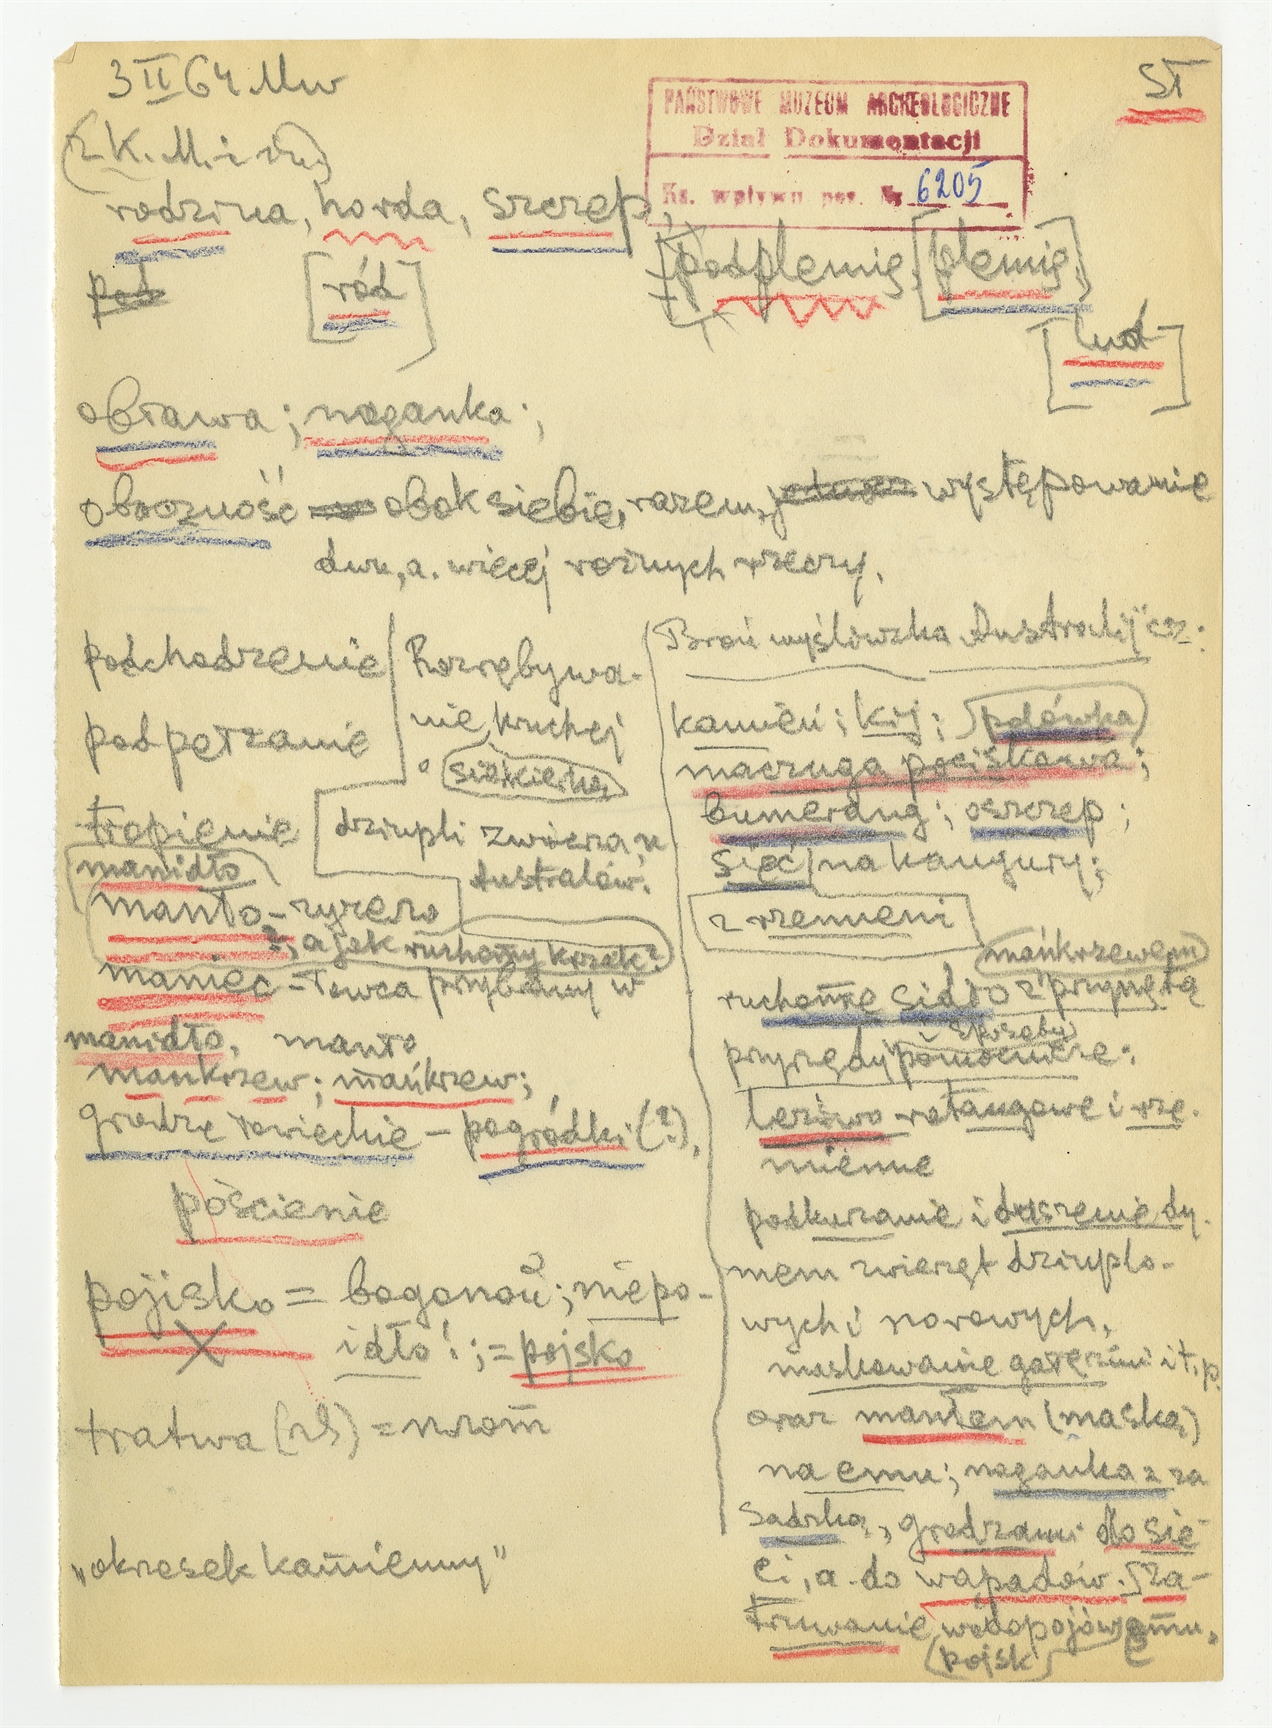 3 II 64 Mw
ST
PAŃSTWOWE MUZEUM ARCHEOLOGICZNE
Dział Dokumentacji
Ks. wpływu poz. Nr 6205
(z K. M. i
rodzina, horda, szczep,
[podplemię, [plemię,]
pod [ród]
[lud]
obława; naganka;
oboczność obok siebie, razem, występowanie
dwu, a. więcej rożnych rzeczy.
podchodzenie
podpełzanie
tropienie
manidło
manto-zwierzę
?, a jak ruchomy krzak?
maniec = łowca przybrany w
manidło, manto
mankrzew; mańkrzew;
grodze łowieckie - pogródki (?),
pościenie
pojisko = bagonoń; niepo-
idło!; = pojsko
tratwa (rS) = nrom
„okresek kamienny"
Rozrębywa-
nie kruchej
siekierką
dziupli zwierza
Australów.
Broń myśliwska Australij"cz:
kamień; kij; pałówka
maczuga pociskowa;
bumerang; oszczep;
sieć na kangury;
z rzemieni
mańkrzewem
ruchome sidło z przynętą
i sposoby
przyrządy pomocnicze:
leziwo rotangowe i rze-
mienne
podkurzanie i duszenie dy-
mem zwierząt dziuplo-
wych i norowych,
maskowanie gałęźmi i t. p.
oraz mantem (maską)
na emu; naganka z za
sadzką, grodzami do sie-
ci, a. do wapadów. Za-
truwanie wodopojów emu,
pojsk